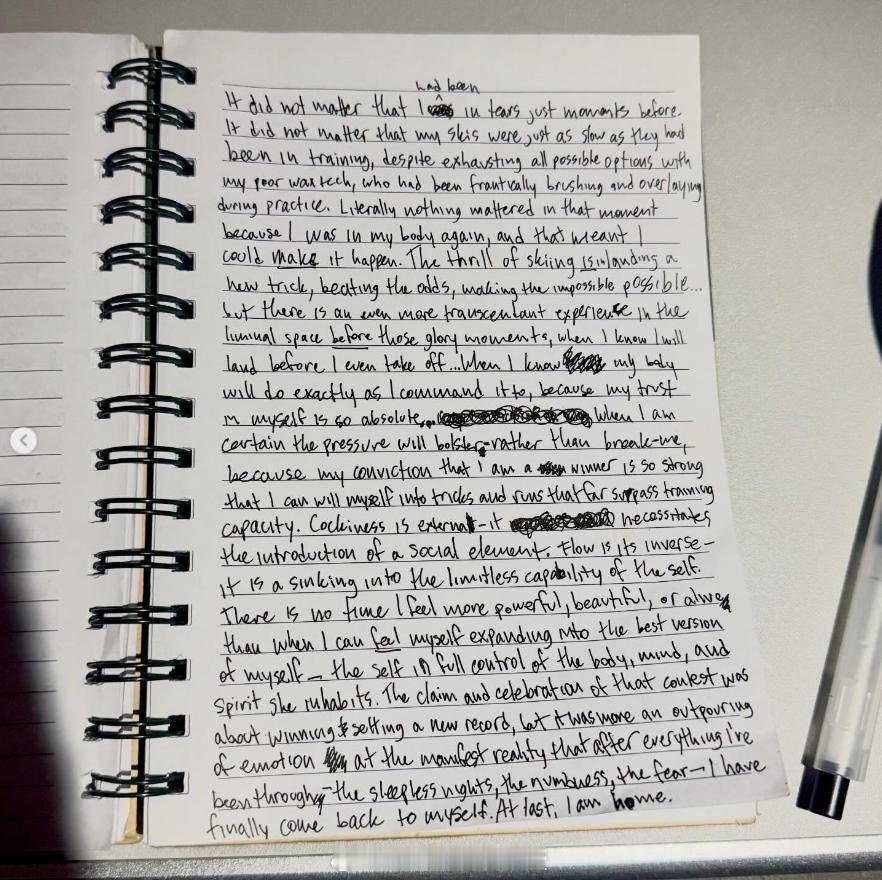 had been
It did not matter that I in tears just moments before.
It did not matter that my skis were just as slow as they had
been in training, despite exhausting all possible options with
my poor wax tech, who had been frantically brushing and overlaying
during practice. Literally nothing mattered in that moment
because I was in my body again, and that meant I
could make it happen. The thrill of skiing is in landing a
new trick, beating the odds, making the impossible possible...
but there is an even more transcendant experience in the
liminal space before those glory moments, when I know I will
land before I even take off...When I know my body
will do exactly as I command it to, because my trust
in myself is so absolute... When I am
certain the pressure will bolster-rather than break-me,
because my conviction that I am a winner is so strong
that I can will myself into tricks and runs that far surpass training
capacity. Cockiness is external-it necessitates
the introduction of a social element. Flow is its inverse-
it is a sinking into the limitless capability of the self.
There is no time I feel more powerful, beautiful, or alive
than when I can feel myself expanding into the best version
of myself - the self in full control of the body, mind, and
spirit she inhabits. The claim and celebration of that contest was
about winning & setting a new record, but it was more an outpouring
of emotion at the manifest reality that after everything I've
been through-the sleepless nights, the numbness, the fear-I have
finally come back to myself. At last, I am home.